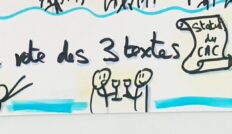 vote des 3 textes
Statuts
du
CAC